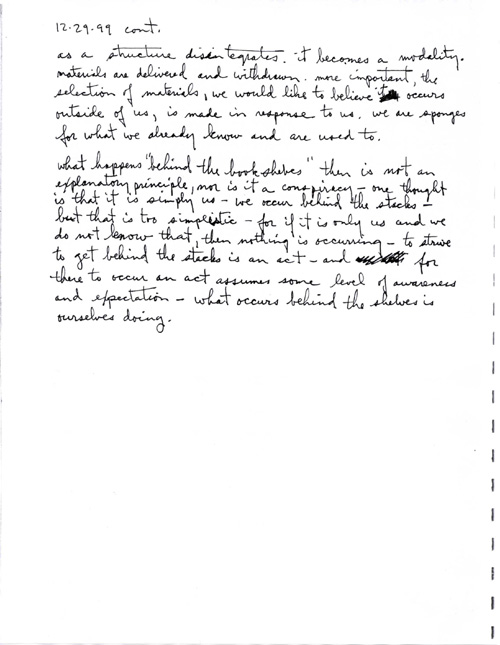 12-29-99 cont.
as a structure disintegrates. it becomes a modality.
materials are delivered and withdrawn. more important, the
selection of materials, we would like to believe occurs
outside of us, is made in response to us. we are sponges
for what we already know and are used to.
what happens "behind the bookshelves" then is not an
explanatory principle, nor is it a conspiracy – one thought
is that it is simply us – we occur behind the stacks –
but that is too simplistic – for if it is only us and we
do not know that, then nothing is occurring – to strive
to get behind the stacks is an act – and for
there to occur an act assumes some level of awareness
and expectation – what occurs behind the shelves is
ourselves doing.